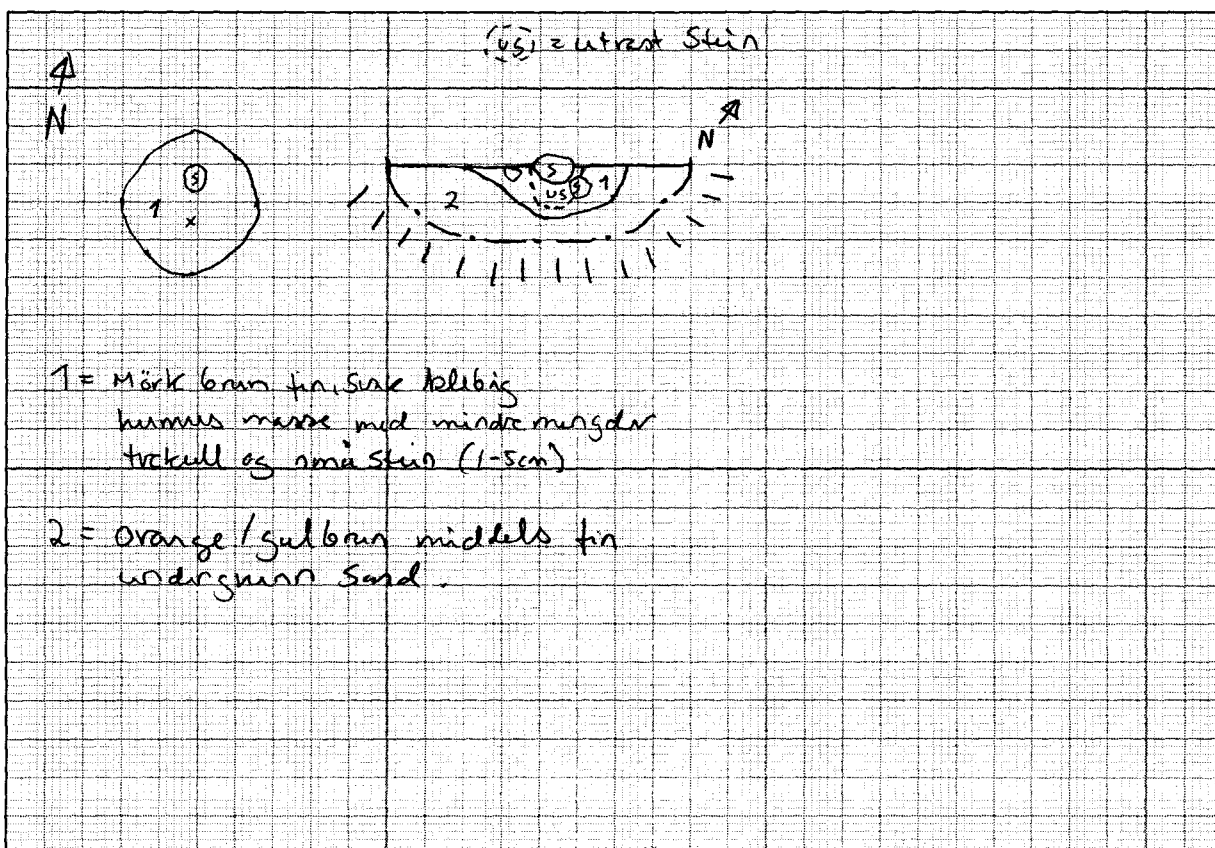 (us) = utrast Stein
N
N
S
1
S
S
1
us
2
1 = Mörk brun fin, klebrig
humus masse med mindre mengder
trekull og små stein (1-5cm)
2 = Orange/gulbrun middels fin
undergrunn sand.